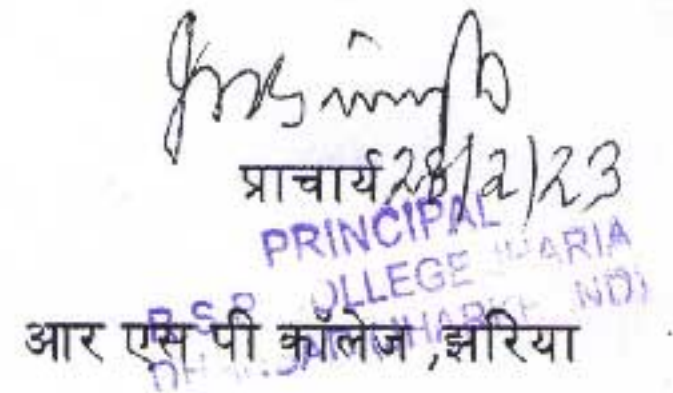 प्राचार्य 28/2/23
PRINCIPAL
R.S.P. COLLEGE JHARIA
आर एस पी कॉलेज ,झरिया